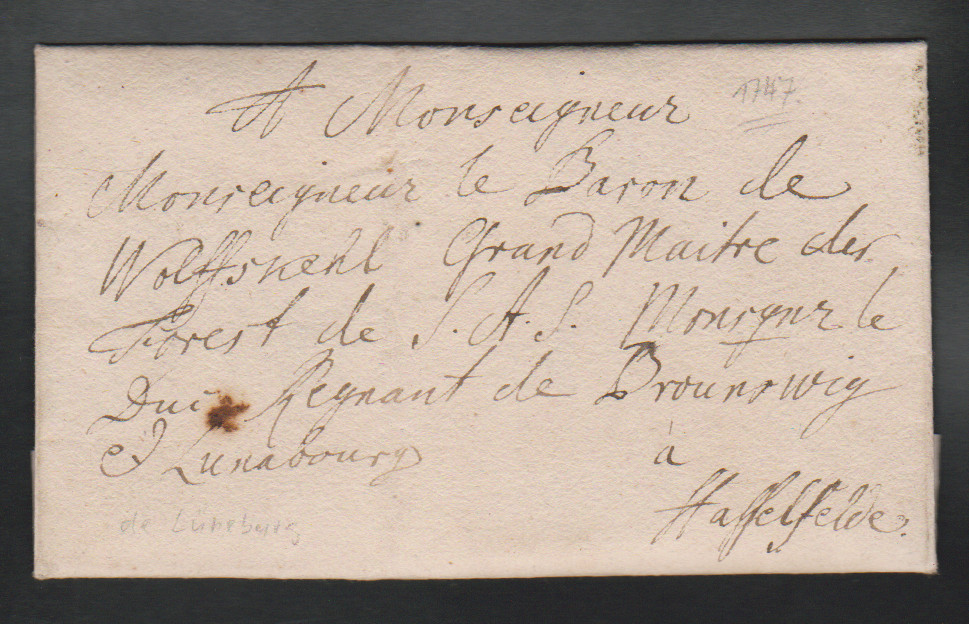 A Monseigneur
1747.
Monseigneur le Baron de
Wolffskehl Grand Maitre des
Forest de S. A. S. Monsgnr le
Duc Regnant de Brounswig
et Lunabourg à
Hasselfelde.
de Lüneburg